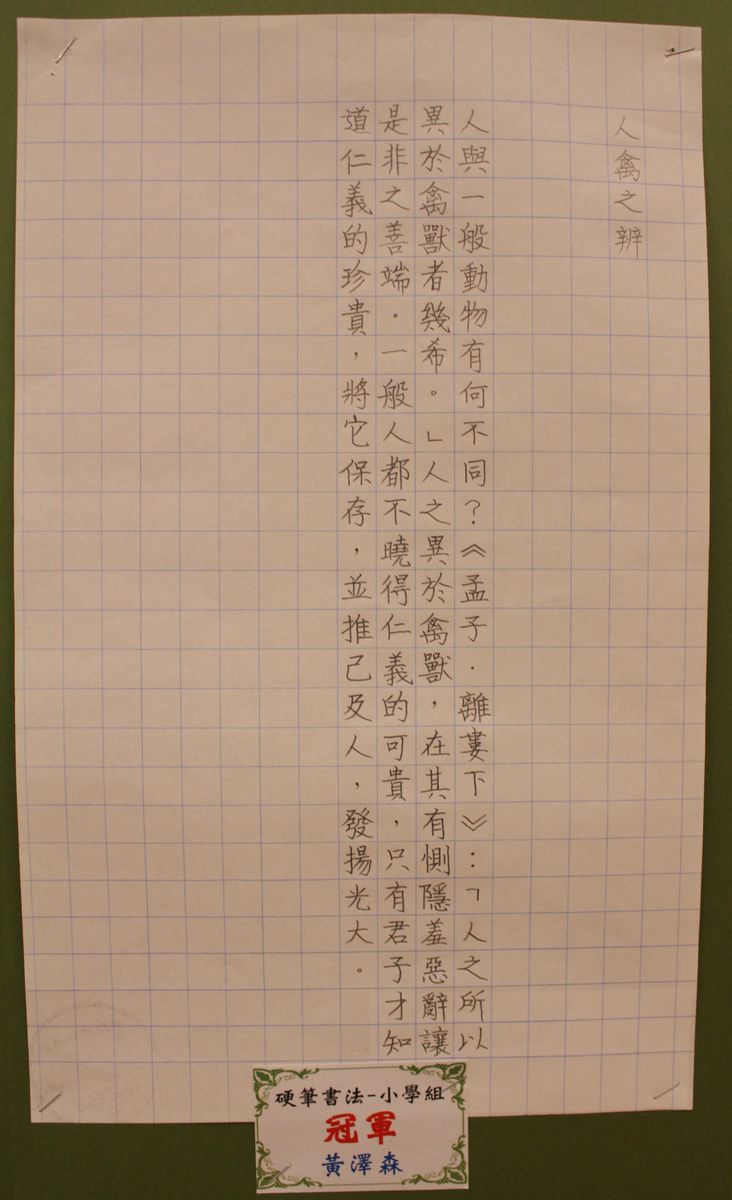 人禽之辨
人與一般動物有何不同？《孟子．離婁下》：「人之所以
異於禽獸者幾希。」人之異於禽獸，在其有惻隱羞惡辭讓
是非之善端．一般人都不曉得仁義的可貴，只有君子才知
道仁義的珍貴，將它保存，並推己及人，發揚光大．
硬筆書法-小學組
冠軍
黃澤森